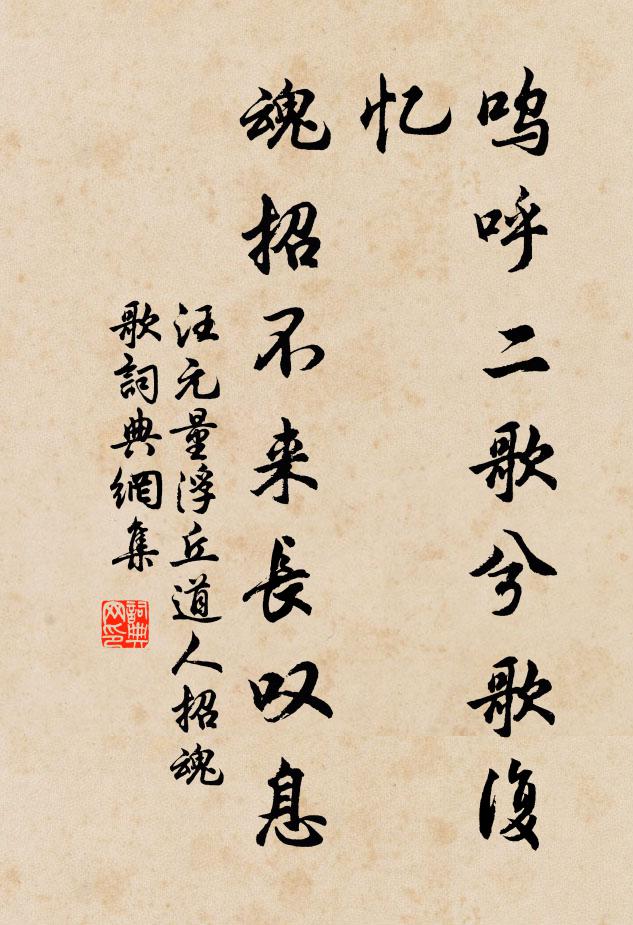 呜呼二歌兮歌復
忆
魂招不来長叹息
汪元量浮丘道人招魂
歌詞典網集
詞典网印